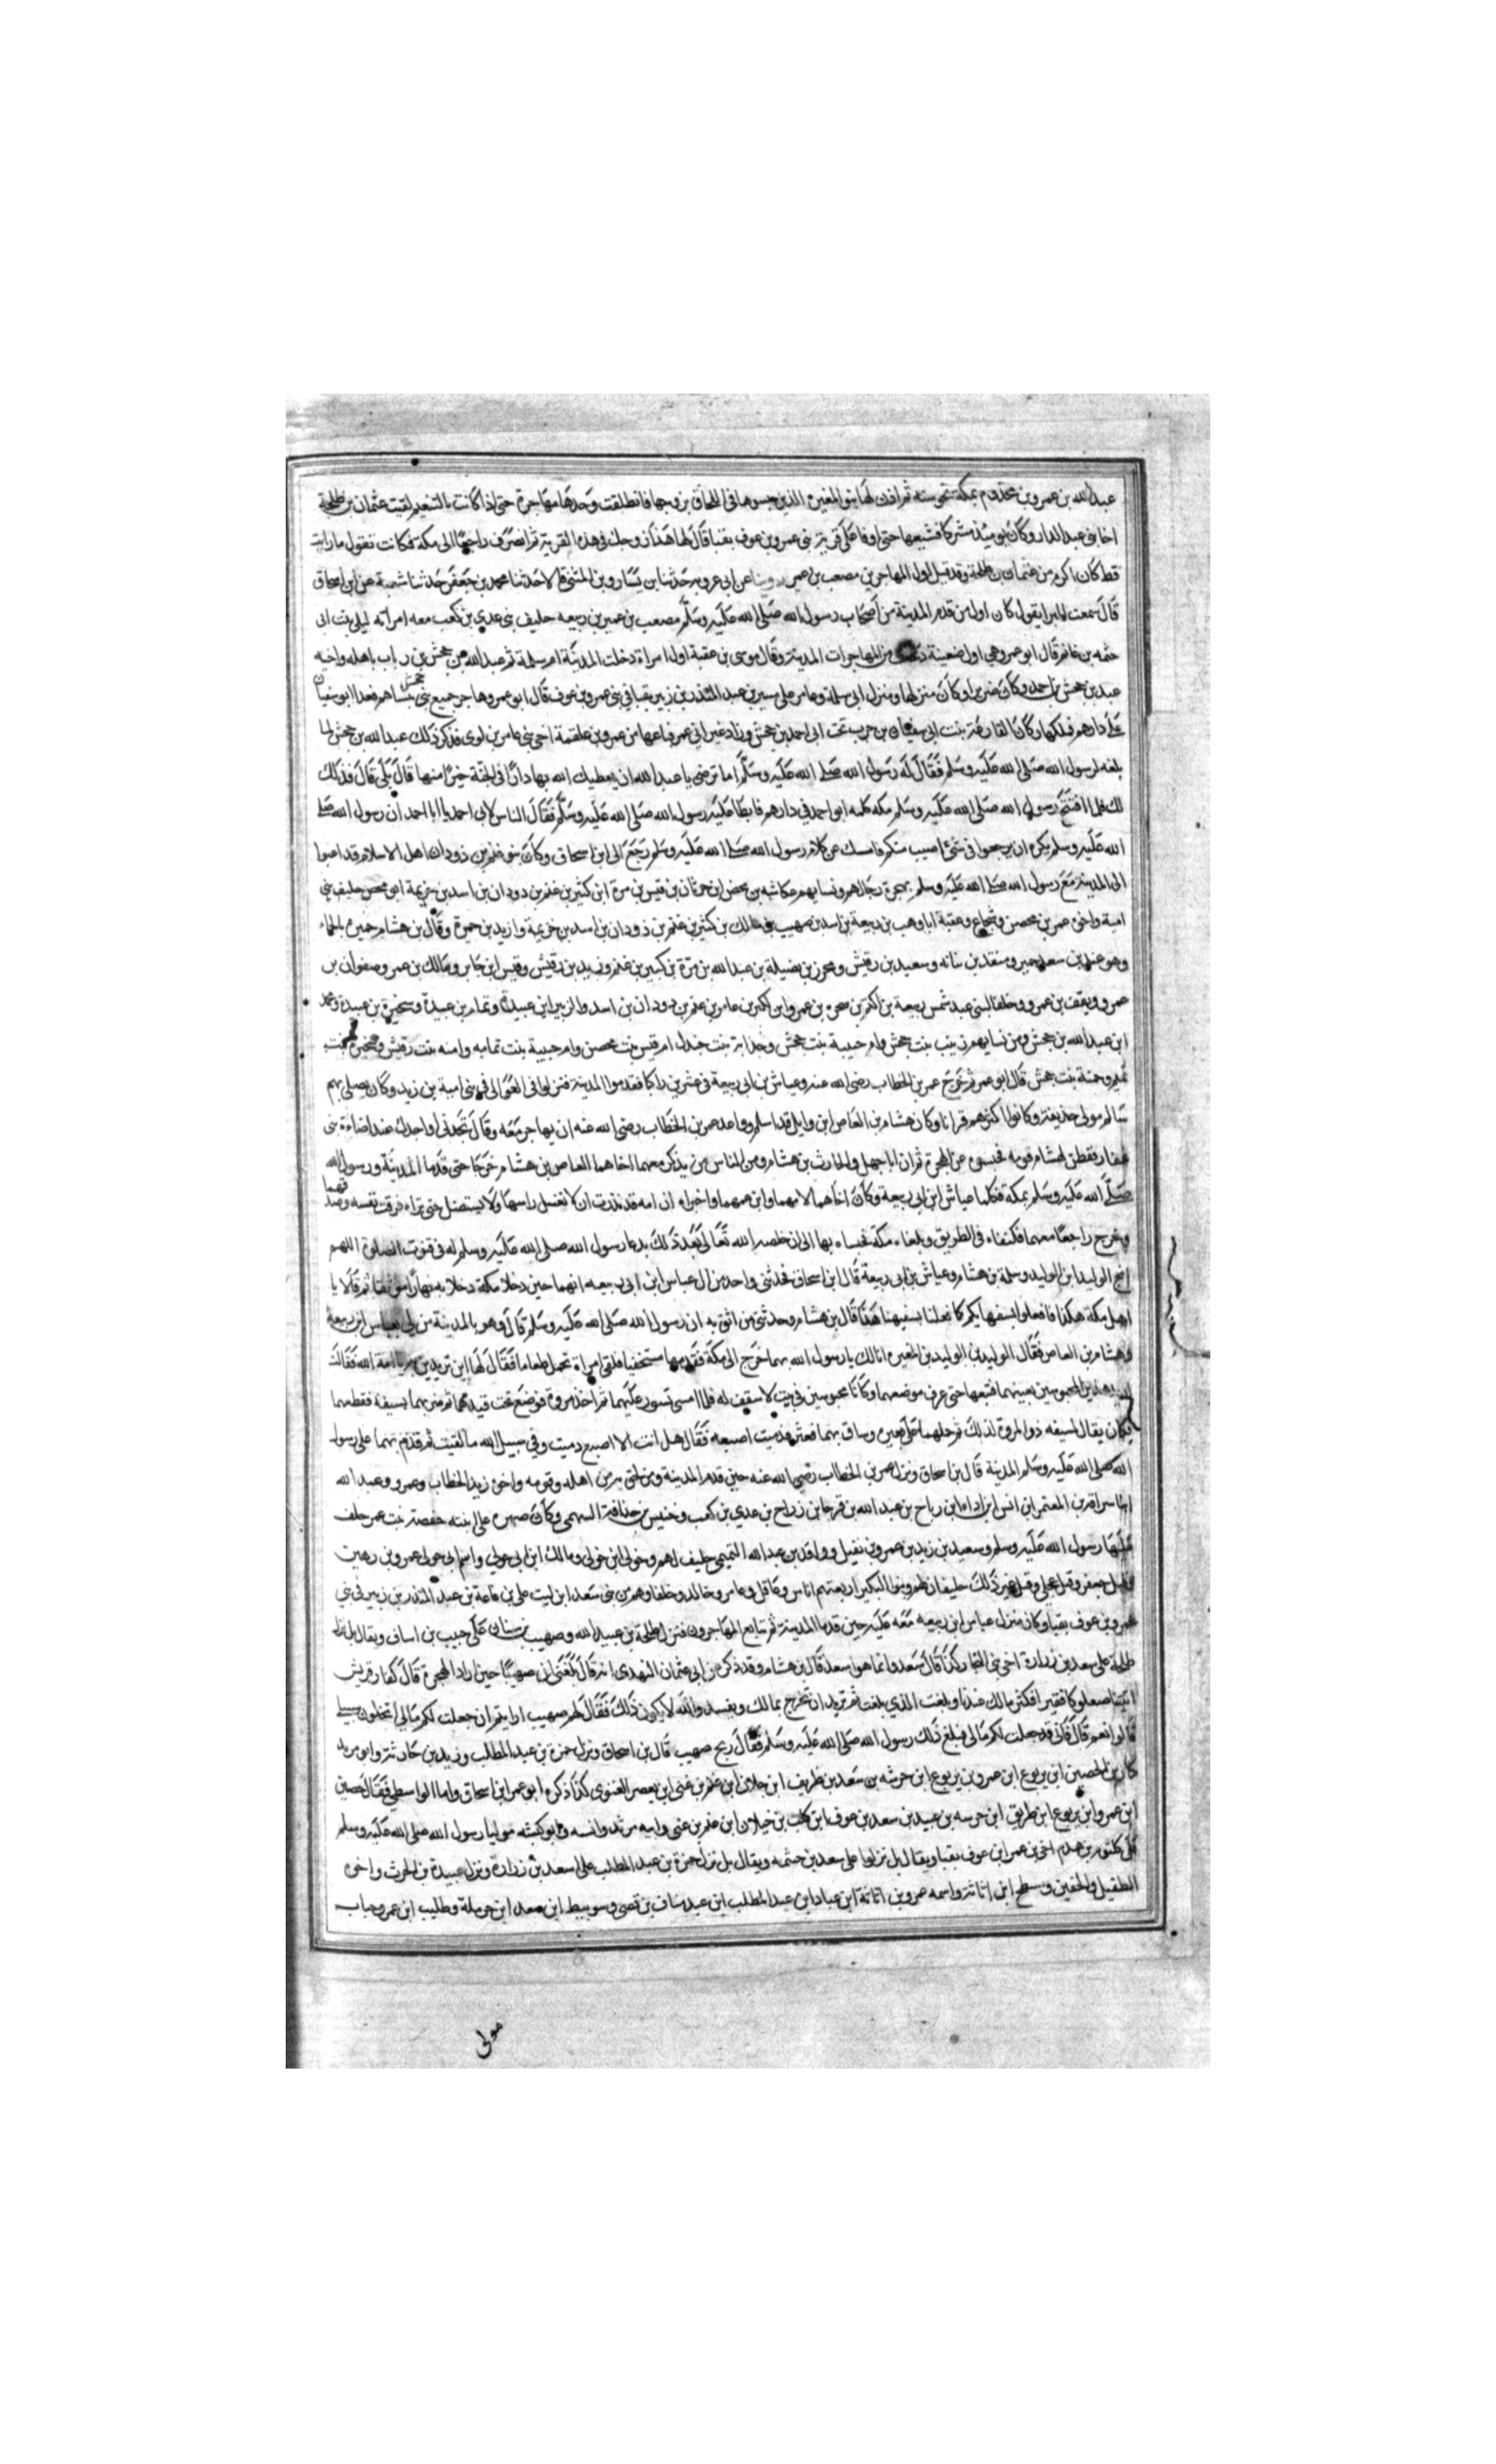 عبد الله بن عمرو بن مخزوم بمكة نحو سنة ثم اذن لها بنو المغيرة الذين حبسوها فى اللحاق بزوجها فانطلقت وحدها مهاجرة حتى اذا كانت بالتنعيم لقيت عثمان بن طلحة
اخا بنى عبد الدار وكان يوميذ مشركا فشيعها حتى اوفا على قرية بنى عمرو بن عوف بقبا قال لها هذا زوجك فى هذه القرية ثم انصرف راجعا الى مكة فكانت تقول ما رايت
قط كان اكرم من عثمان بن طلحة وقد قيل اول المهاجرين مصعب بن عمير روينا عن ابى عروبه حدثنا بن يسار وبن المثنى قالا حدثنا محمد بن جعفر حدثنا شعبة عن ابن اسحاق
قال سمعت البرا يقول كان اول من قدم المدينة من اصحاب رسول الله صلى الله عليه وسلم مصعب بن عمير بن ربيعه حليف بنى عدى بن كعب معه امراته ليلى بنت ابى
حثمه بن غانم قال ابو عمر وهي اول ضعينة من المهاجرات المدينة وقال موسى بن عقبة اول امراة دخلت المدينة ام سلمة ثم عبد الله بن جحش بن رياب باهله واخيه
عبد بن جحش ابى احمد وكان ضريرا وكان منزلها ومنزل ابى سلمه وعامر على مبشر بن عبد المنذر بن زبير بقبا فى بنى عمرو بن عوف قال ابو عمر وهاجر جميع بنى جحش بنساهم فعدا ابو سفيان
على دارهم فملكها وكان الفارعة بنت ابى سفيان بن حرب تحت ابى احمد بن جحش وزاد غير ابى عمر فباعها من عمرو بن علقمة اخى بنى عامر بن لوى فذكر ذلك عبد الله بن جحش لما
بلغه لرسول الله صلى الله عليه وسلم فقال له رسول الله صلى الله عليه وسلم اما ترضى يا عبد الله ان يعطيك الله بها دارا فى الجنة خيرا منها قال بلى قال فذلك
لك فلما افتتح رسول الله صلى الله عليه وسلم مكه كلمه ابو احمد في دارهم فابطا عليه رسول الله صلى الله عليه وسلم فقال الناس لابى احمد يا ابا احمد ان رسول الله صلى
الله عليه وسلم يكره ان يرجعوا فى شئ اصيب منكم فامسك عن كلام رسول الله صلى الله عليه وسلم رجع الى ابن اسحاق وكان بنو غنم بن ذودان اهل الاسلام قد اعبوا
الى المدينة مع رسول الله صلى الله عليه وسلم هجرة رجالهم ونسايهم عكاشه بن محصن بن حرثان بن قيس بن مرة ابن كثير بن غنم بن دودان بن اسد بن خزيمة ابى محصن حليف بنى
امية واخوه عمر بن محصن وشجاع وعقبة ابا وهب بن ربيعة بن اسد بن صهيب بن مالك بن كثير بن غنم بن ذودان بن اسد بن خزيمة واربد بن حميرة وقال بن هشام حميره بالحاء
وهو عند بن سعد حمير ومنقذ بن نباته وسعيد بن رقيش ومحرز بن نضيلة بن عبد الله بن مرة بن كبير بن غنم وزيد بن رقيش وقيس ابن جابر ومالك بن عمر وصفوان بن
عمرو وثقف بن عمرو وحلفا لبنى عبد شمس ربيعة بن اكثم بن بن عمرو ابن لكيز بن عامر بن غنم بن دودان بن اسد والزبير ابن عبيدة وتمام بن عبيدة وسخبرة بن عبيدة ومحمد
ابن عبد الله بن جحش ومن نسايهم زينب بنت جحش وام حبيبة بنت جحش وجذامة بنت جندل ام قيس بنت محصن وام حبيبة بنت ثمامه وامنه بنت رقيش وسخبرة بنت
تميم وحمنة بنت جحش قال ابو عمر ثم خرج عمر بن الخطاب رضى الله عنه وعياش بن ابى ربيعة فى عشرين راكبا فقدموا المدينة فنزلوا فى العوالى فى بنى امية بن زيد وكان يصلى بهم
سالم مولى حذيفة وكانوا اكثرهم قرانا وكان هشام بن العاص ابن وايل قد اسلم وواعد عمر بن الخطاب رضى الله عنه ان يهاجر معه وقال تجدنى او اجدك عند اضاءة بنى
غفار ففطن لهشام قومه فحبسوه عن الهجرة ثم ان ابا جهل والحارث بن هشام ومن الناس من يذكر معهما اخاهما العاص بن هشام خرجا حتى قدما المدينة ورسول الله
صلى الله عليه وسلم بمكة فكلما عياش ابن ابى ربيعة وكان اخاهما لامهما وابن عمهما واخبراه ان امه قد نذرت ان لا تغسل راسها ولا تستضل حتى تراه فرقت نفسه وصدقهما
وخرج راجعا معهما فكتفاه فى الطريق وبلغاه مكة فحبساه بها الى ان خلصه الله تعالى بعد ذلك بدعا رسول الله صلى الله عليه وسلم له فى قنوت الصلوة اللهم
انج الوليد ابن الوليد وسلمة بن هشام وعياش بن ابى ربيعة قال ابن اسحاق فحدثنى واحد من ال عباس ابن ابى ربيعه انهما حين دخلا مكة دخلا به نهارا موثقا ثم قالا يا
اهل مكة هكذا فافعلوا بسفهايكم كما فعلنا بسفيهنا هذا قال بن هشام وحدثنى من اثق به ان رسول الله صلى الله عليه وسلم قال وهو بالمدينة من لى بعياس ابن ربيعة
وهشام بن العاص فقال الوليد بن الوليد بن المغيره انا لك يا رسول الله بهما خرج الى مكة فقدمها مستخفيا فلقى امراة تحمل طعاما فقال لها اين تريدين يا امة الله فقالت
اريد هذين المحبوسين بعينهما فتبعها حتى عرف موضعهما وكانا محبوسين فى بيت لا سقف له فلما امسى تسور عليهما ثم اخذ مروة فوضع تحت قيديهما ثم ضربهما بسيفه فقطعهما
فكان يقال لسيفه ذو المروة لذلك ثم حملهما على بعيره وساق بهما فعثر فدميت اصبعه فقال هل انت الا اصبع دميت وفى سبيل الله ما لقيت ثم قدم بهما على رسول
الله صلى الله عليه وسلم المدينة قال بن اسحاق ونزل عمر بن الخطاب رضى الله عنه حين قدم المدينة ومن لحق به من اهله وقومه واخوه زيد الخطاب وعمرو وعبد الله
ابنا سراقة بن المعتمر ابن انس ابن اداه ابن رباح بن عبد الله بن قرط ابن رزاح بن عدى بن كعب وخنيس بن حذافة السهمى وكان صهره على ابنته حفصة بنت عمر خلف
عليها رسول الله عليه وسلم وسعيد بن زيد بن عمرو بن نفيل وواقد بن عبد الله التميمى حليف لهم وخولى ابن خولى ومالك ابن ابى خولى واسم ابى خولى عمرو بن زهير
وقيل غير ذلك حليفان لهم وبنوا البكير اربعتهم اناس وعاقل وعامر وخالد وحلفاوهم من بنى سعد ابن ليث على بن فاعة بن عبد المنذر بن زبير فى بنى
عمرو بن عوف بقبا وكان منزل عباس ابن ربيعه معه عليه حين قدما المدينة ثم تتابع المهاجرون فنزل طلحة بن عبيد الله وصهيب بن سنان على حبيب بن اساف ويقال بل نزل
طلحة على سعد بن زرارة اخى بنى النجار كذا قال سعد وانما هو اسعد قال بن هشام وقد ذكر من ابى عثمان النهدى انه قال بلغنى ان صهيبا حين اراد الهجرة قال كفار قريش
اتيتنا صعلوكا فقيرا فكثر مالك عندنا وبلغت الذى بلغت ثم تريد ان تخرج بمالك وبنفسك والله لا يكون ذلك فقال لهم صهيب ارايتم ان جعلت لكم مالى اتخلون سبيلى
قالوا نعم قال فانى قد جعلت لكم مالى فبلغ ذلك رسول الله صلى الله عليه وسلم فقال ربح صهيب قال بن اسحاق ونزل حمزة بن عبد المطلب وزيد بن حارثة وابو مرثد
كناز بن الحصين ابن يربوع ابن عمرو بن يربوع ابن خرشه بن سعد بن ظريف ابن جلان ابن غنم بن غنى ابن يعصر الغنوى كذا ذكره ابو عمر ابن اسحاق واما الواسطى فقال حصين
ابن عمرو ابن يربوع ابن طريف ابن خرسه بن عبيد بن سعد بن عوف ابن كعب بن خيلان ابن غنم بن غنى وابنه مرثد وانسه وابو كبشه موليا رسول الله صلى الله عليه وسلم
على كلثوم بن هدم اخى بن عمر ابن عوف بقبا ويقال بل نزلوا على سعد بن حثمه ويقال بل نزل حمزة بن عبد المطلب على اسعد بن زرارة ونزل عبيدة بن الحرث واخوه
الطفيل والحصين ومسطح ابن اثاثة واسمه عمرو بن اثاثة ابن عباد ابن عبد المطلب ابن عبد مناف بن قصى وسويبط ابن سعد ابن حرملة وطليب ابن عمر وخباب
مولى